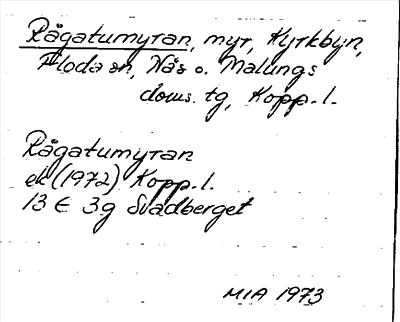 Rågatumyran, myr, Kyrkbyn,
Floda sn, Nås o. Malungs
doms. tg, Kopp. l.
Rågatumyran
ek (1972) Kopp. l.
13 E 3g Svadberget
MIA 1973